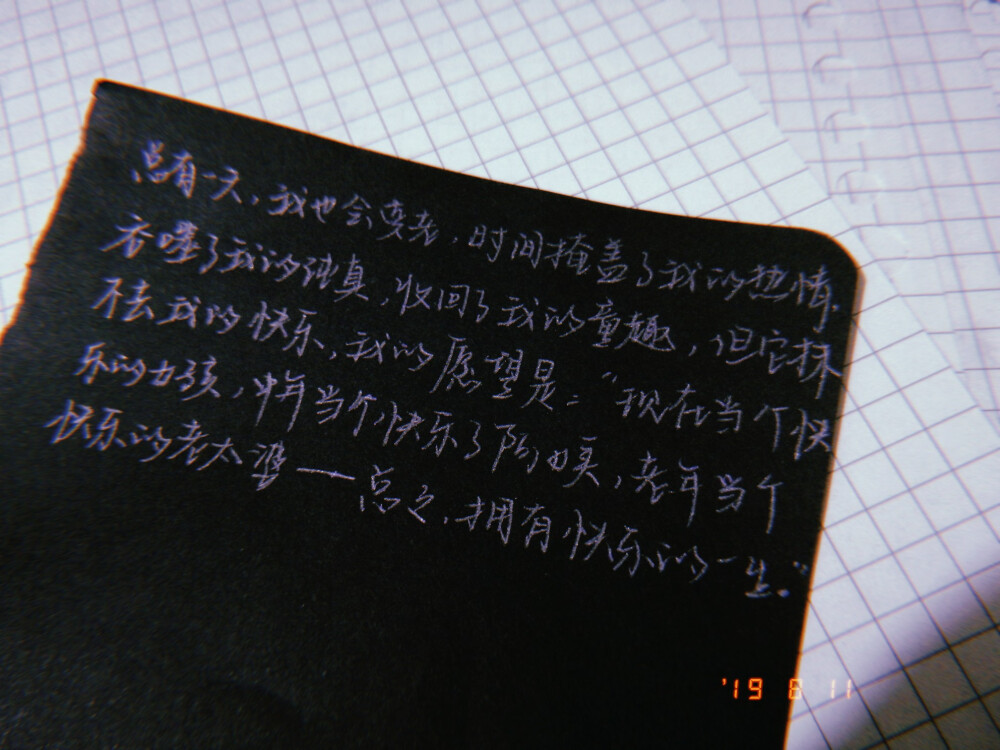 总有一天，我也会变老，时间掩盖了我的热情，
吞噬了我的纯真，收回了我的童趣，但它抹
不去我的快乐，我的愿望是：“现在当个快
乐的女孩，中年当个快乐了阿姨，老年当个
快乐的老太婆——总之，拥有快乐的一生。”
'19 8 11